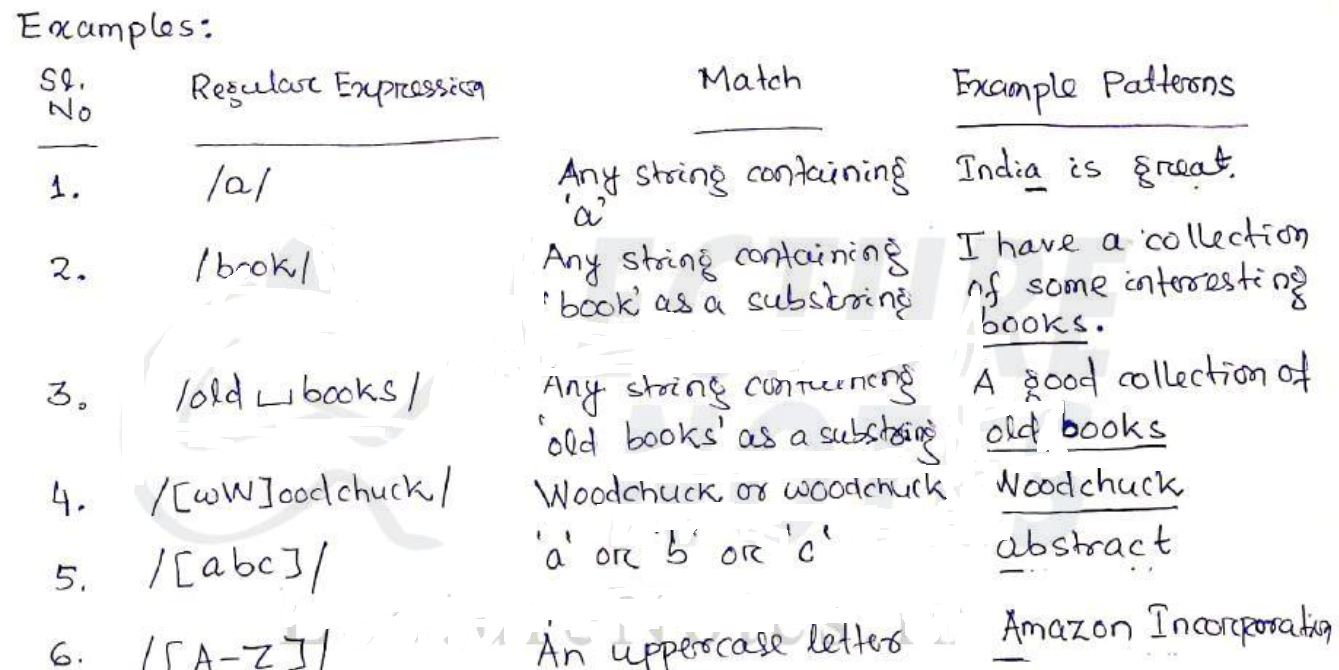 Examples:
Sl. No Regular Expression Match Example Patterns
1. /a/ Any string containing 'a' India is great.
2. /book/ Any string containing 'book' as a substring I have a collection of some interesting books.
3. /old ⌴ books/ Any string containing 'old books' as a substring A good collection of old books
4. /[wW]oodchuck/ Woodchuck or woodchuck Woodchuck
5. /[abc]/ 'a' or 'b' or 'c' abstract
6. /[A-Z]/ An uppercase letter Amazon Incorporation